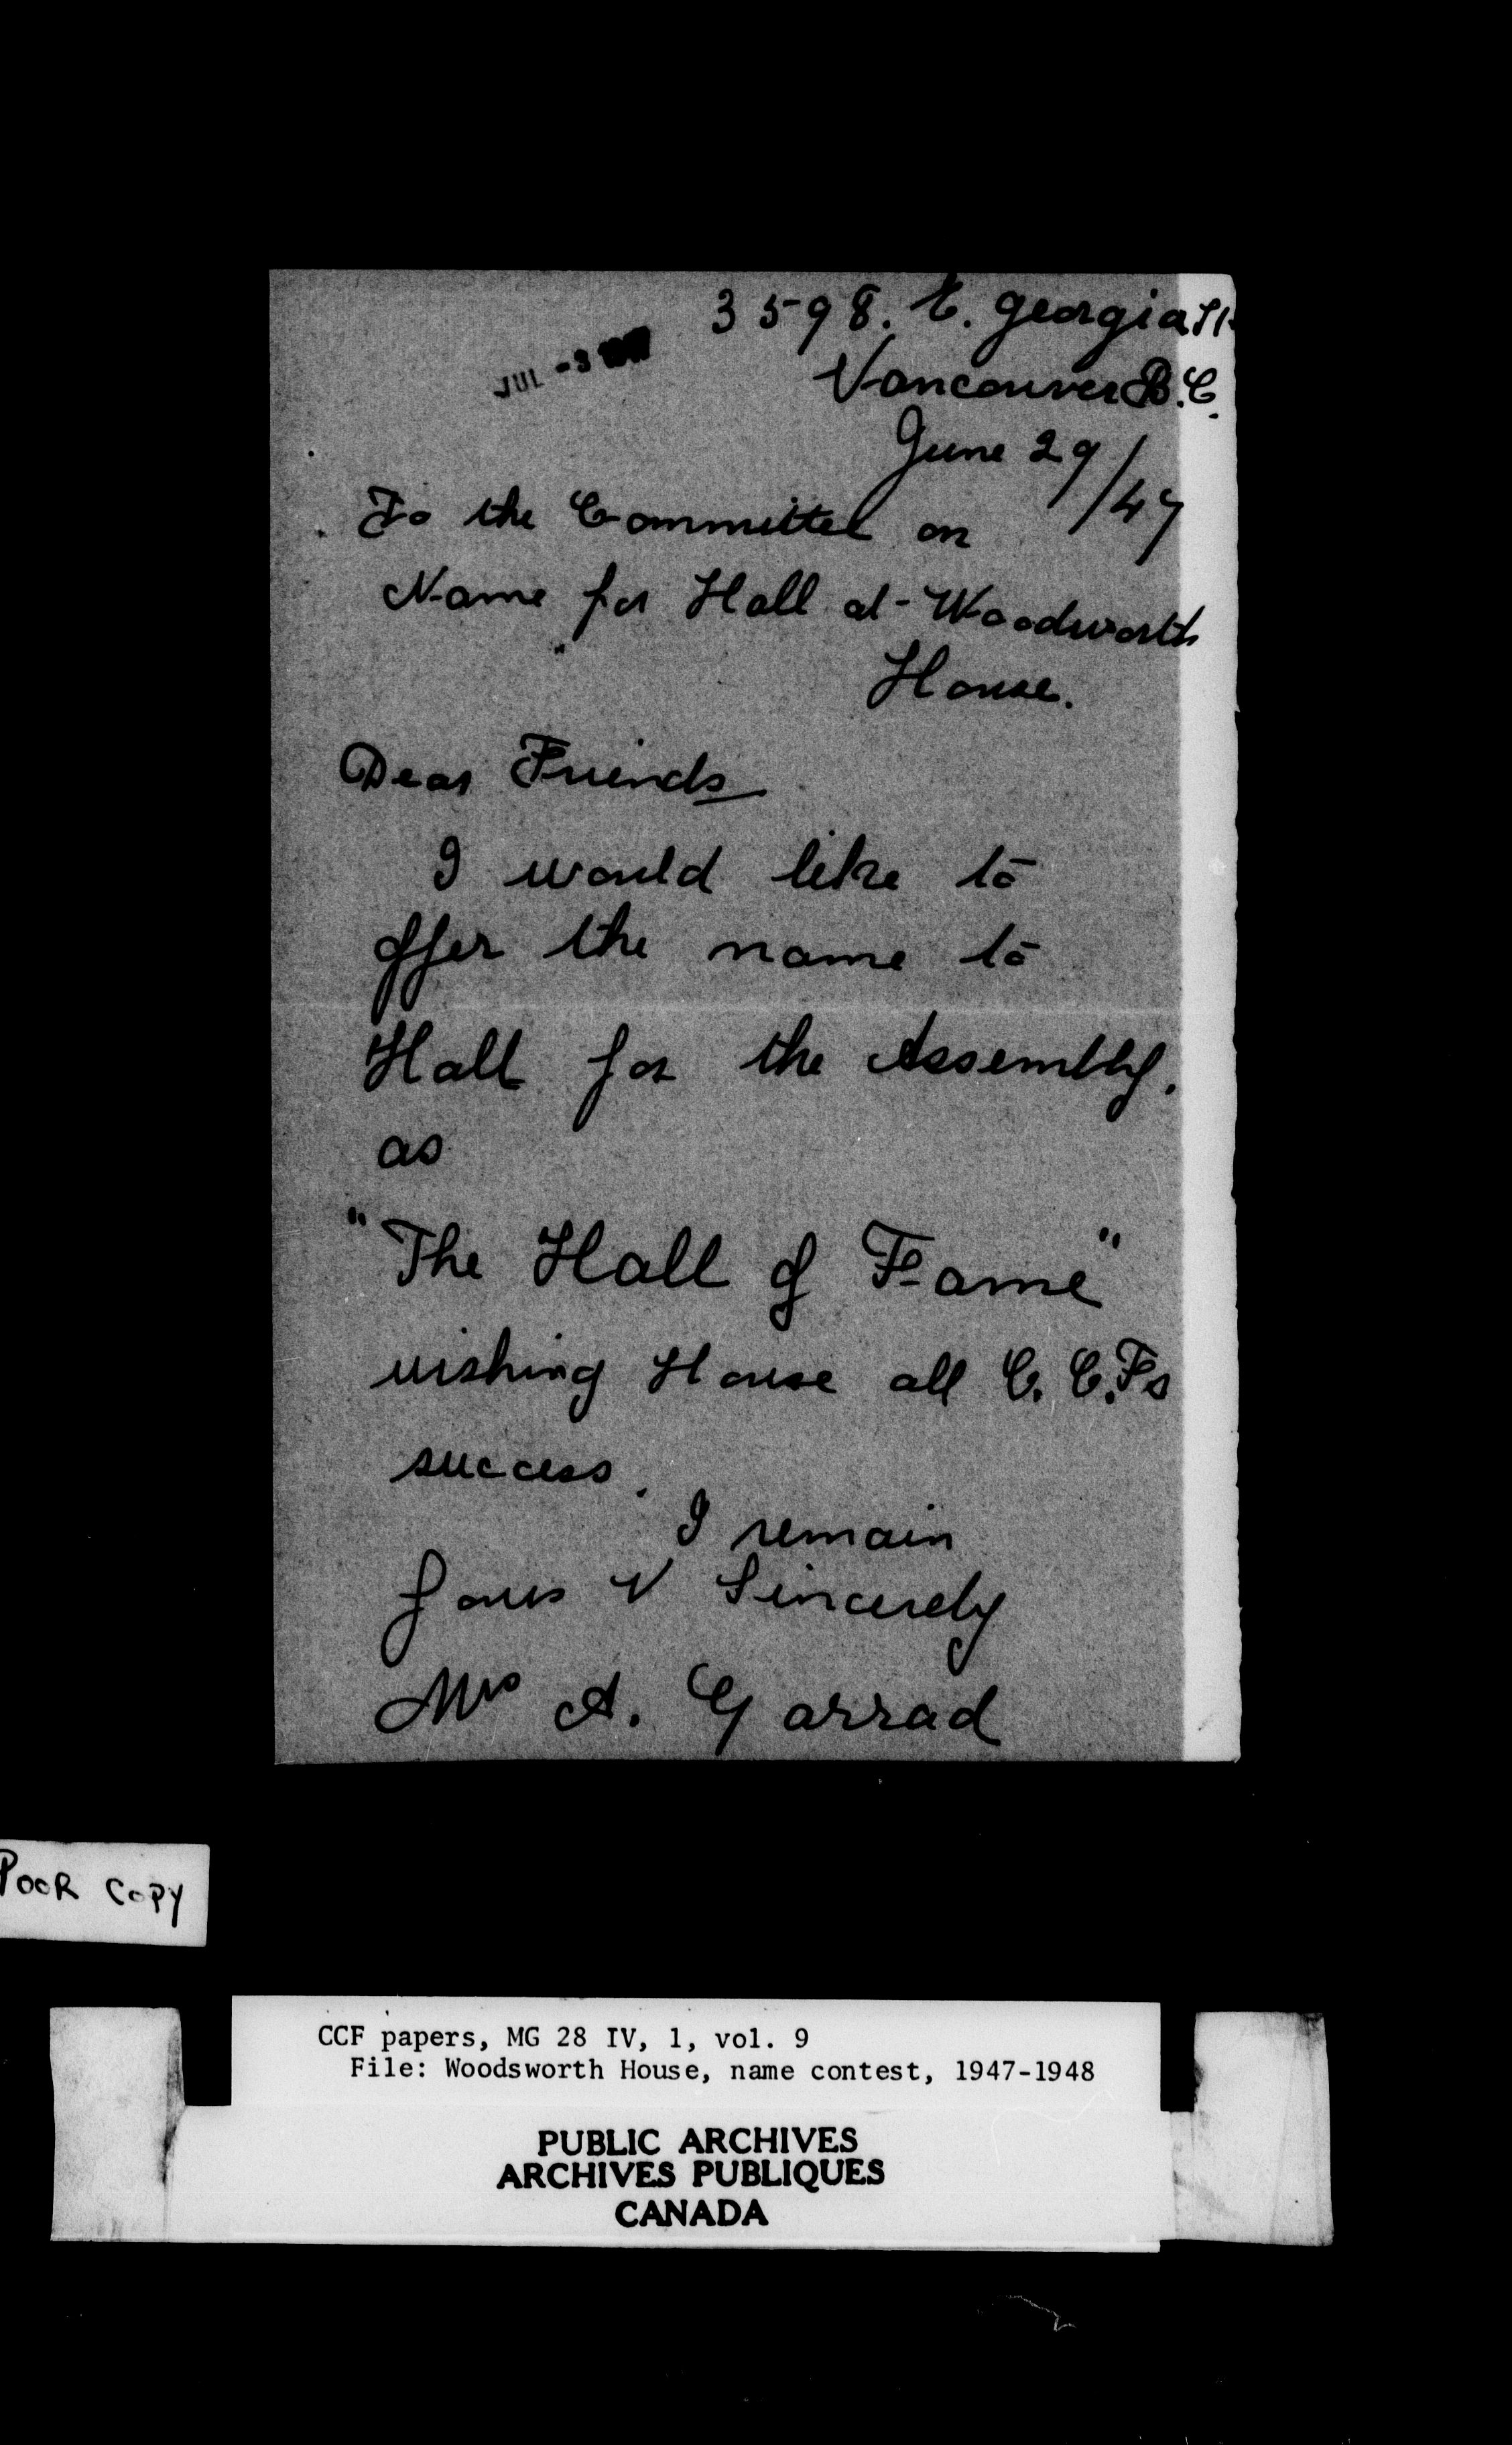 3598. E. Georgia St.
JUL -3 1947
Vancouver B.C.
June 29/47
To the Committee on
Name for Hall at Woodworth
House.
Dear Friends
I would like to
offer the name to
Hall for the Assembly.
as
"The Hall of Fame"
wishing House all C.C.Fs
success.
I remain
Yours V Sincerely
Mrs A. Garrad
POOR COPY
CCF papers, MG 28 IV, 1, vol. 9
File: Woodsworth House, name contest, 1947-1948
PUBLIC ARCHIVES
ARCHIVES PUBLIQUES
CANADA